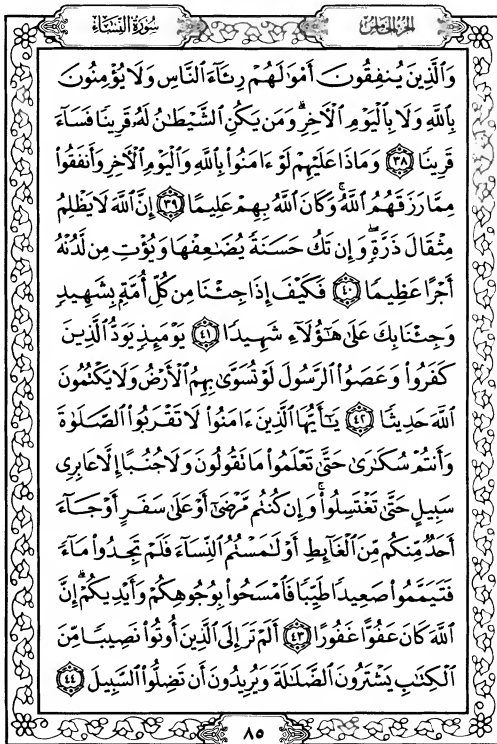 الجزء الخامس
سورة النساء
وَٱلَّذِينَ يُنفِقُونَ أَمْوَٰلَهُمْ رِئَآءَ ٱلنَّاسِ وَلَا يُؤْمِنُونَ
بِٱللَّهِ وَلَا بِٱلْيَوْمِ ٱلْءَاخِرِ ۗ وَمَن يَكُنِ ٱلشَّيْطَٰنُ لَهُۥ قَرِينًا فَسَآءَ
قَرِينًا ٣٨ وَمَاذَا عَلَيْهِمْ لَوْ ءَامَنُوا۟ بِٱللَّهِ وَٱلْيَوْمِ ٱلْءَاخِرِ وَأَنفَقُوا۟
مِمَّا رَزَقَهُمُ ٱللَّهُ ۚ وَكَانَ ٱللَّهُ بِهِمْ عَلِيمًا ٣٩ إِنَّ ٱللَّهَ لَا يَظْلِمُ
مِثْقَالَ ذَرَّةٍ ۖ وَإِن تَكُ حَسَنَةً يُضَٰعِفْهَا وَيُؤْتِ مِن لَّدُنْهُ
أَجْرًا عَظِيمًا ٤٠ فَكَيْفَ إِذَا جِئْنَا مِن كُلِّ أُمَّةٍۭ بِشَهِيدٍ
وَجِئْنَا بِكَ عَلَىٰ هَٰٓؤُلَآءِ شَهِيدًا ٤١ يَوْمَئِذٍ يَوَدُّ ٱلَّذِينَ
كَفَرُوا۟ وَعَصَوُا۟ ٱلرَّسُولَ لَوْ تُسَوَّىٰ بِهِمُ ٱلْأَرْضُ وَلَا يَكْتُمُونَ
ٱللَّهَ حَدِيثًا ٤٢ يَٰٓأَيُّهَا ٱلَّذِينَ ءَامَنُوا۟ لَا تَقْرَبُوا۟ ٱلصَّلَوٰةَ
وَأَنتُمْ سُكَٰرَىٰ حَتَّىٰ تَعْلَمُوا۟ مَا تَقُولُونَ وَلَا جُنُبًا إِلَّا عَابِرِى
سَبِيلٍ حَتَّىٰ تَغْتَسِلُوا۟ ۚ وَإِن كُنتُم مَّرْضَىٰٓ أَوْ عَلَىٰ سَفَرٍ أَوْ جَآءَ
أَحَدٌ مِّنكُم مِّنَ ٱلْغَآئِطِ أَوْ لَٰمَسْتُمُ ٱلنِّسَآءَ فَلَمْ تَجِدُوا۟ مَآءً
فَتَيَمَّمُوا۟ صَعِيدًا طَيِّبًا فَٱمْسَحُوا۟ بِوُجُوهِكُمْ وَأَيْدِيكُمْ ۗ إِنَّ
ٱللَّهَ كَانَ عَفُوًّا غَفُورًا ٤٣ أَلَمْ تَرَ إِلَى ٱلَّذِينَ أُوتُوا۟ نَصِيبًا مِّنَ
ٱلْكِتَٰبِ يَشْتَرُونَ ٱلضَّلَٰلَةَ وَيُرِيدُونَ أَن تَضِلُّوا۟ ٱلسَّبِيلَ ٤٤
٨٥